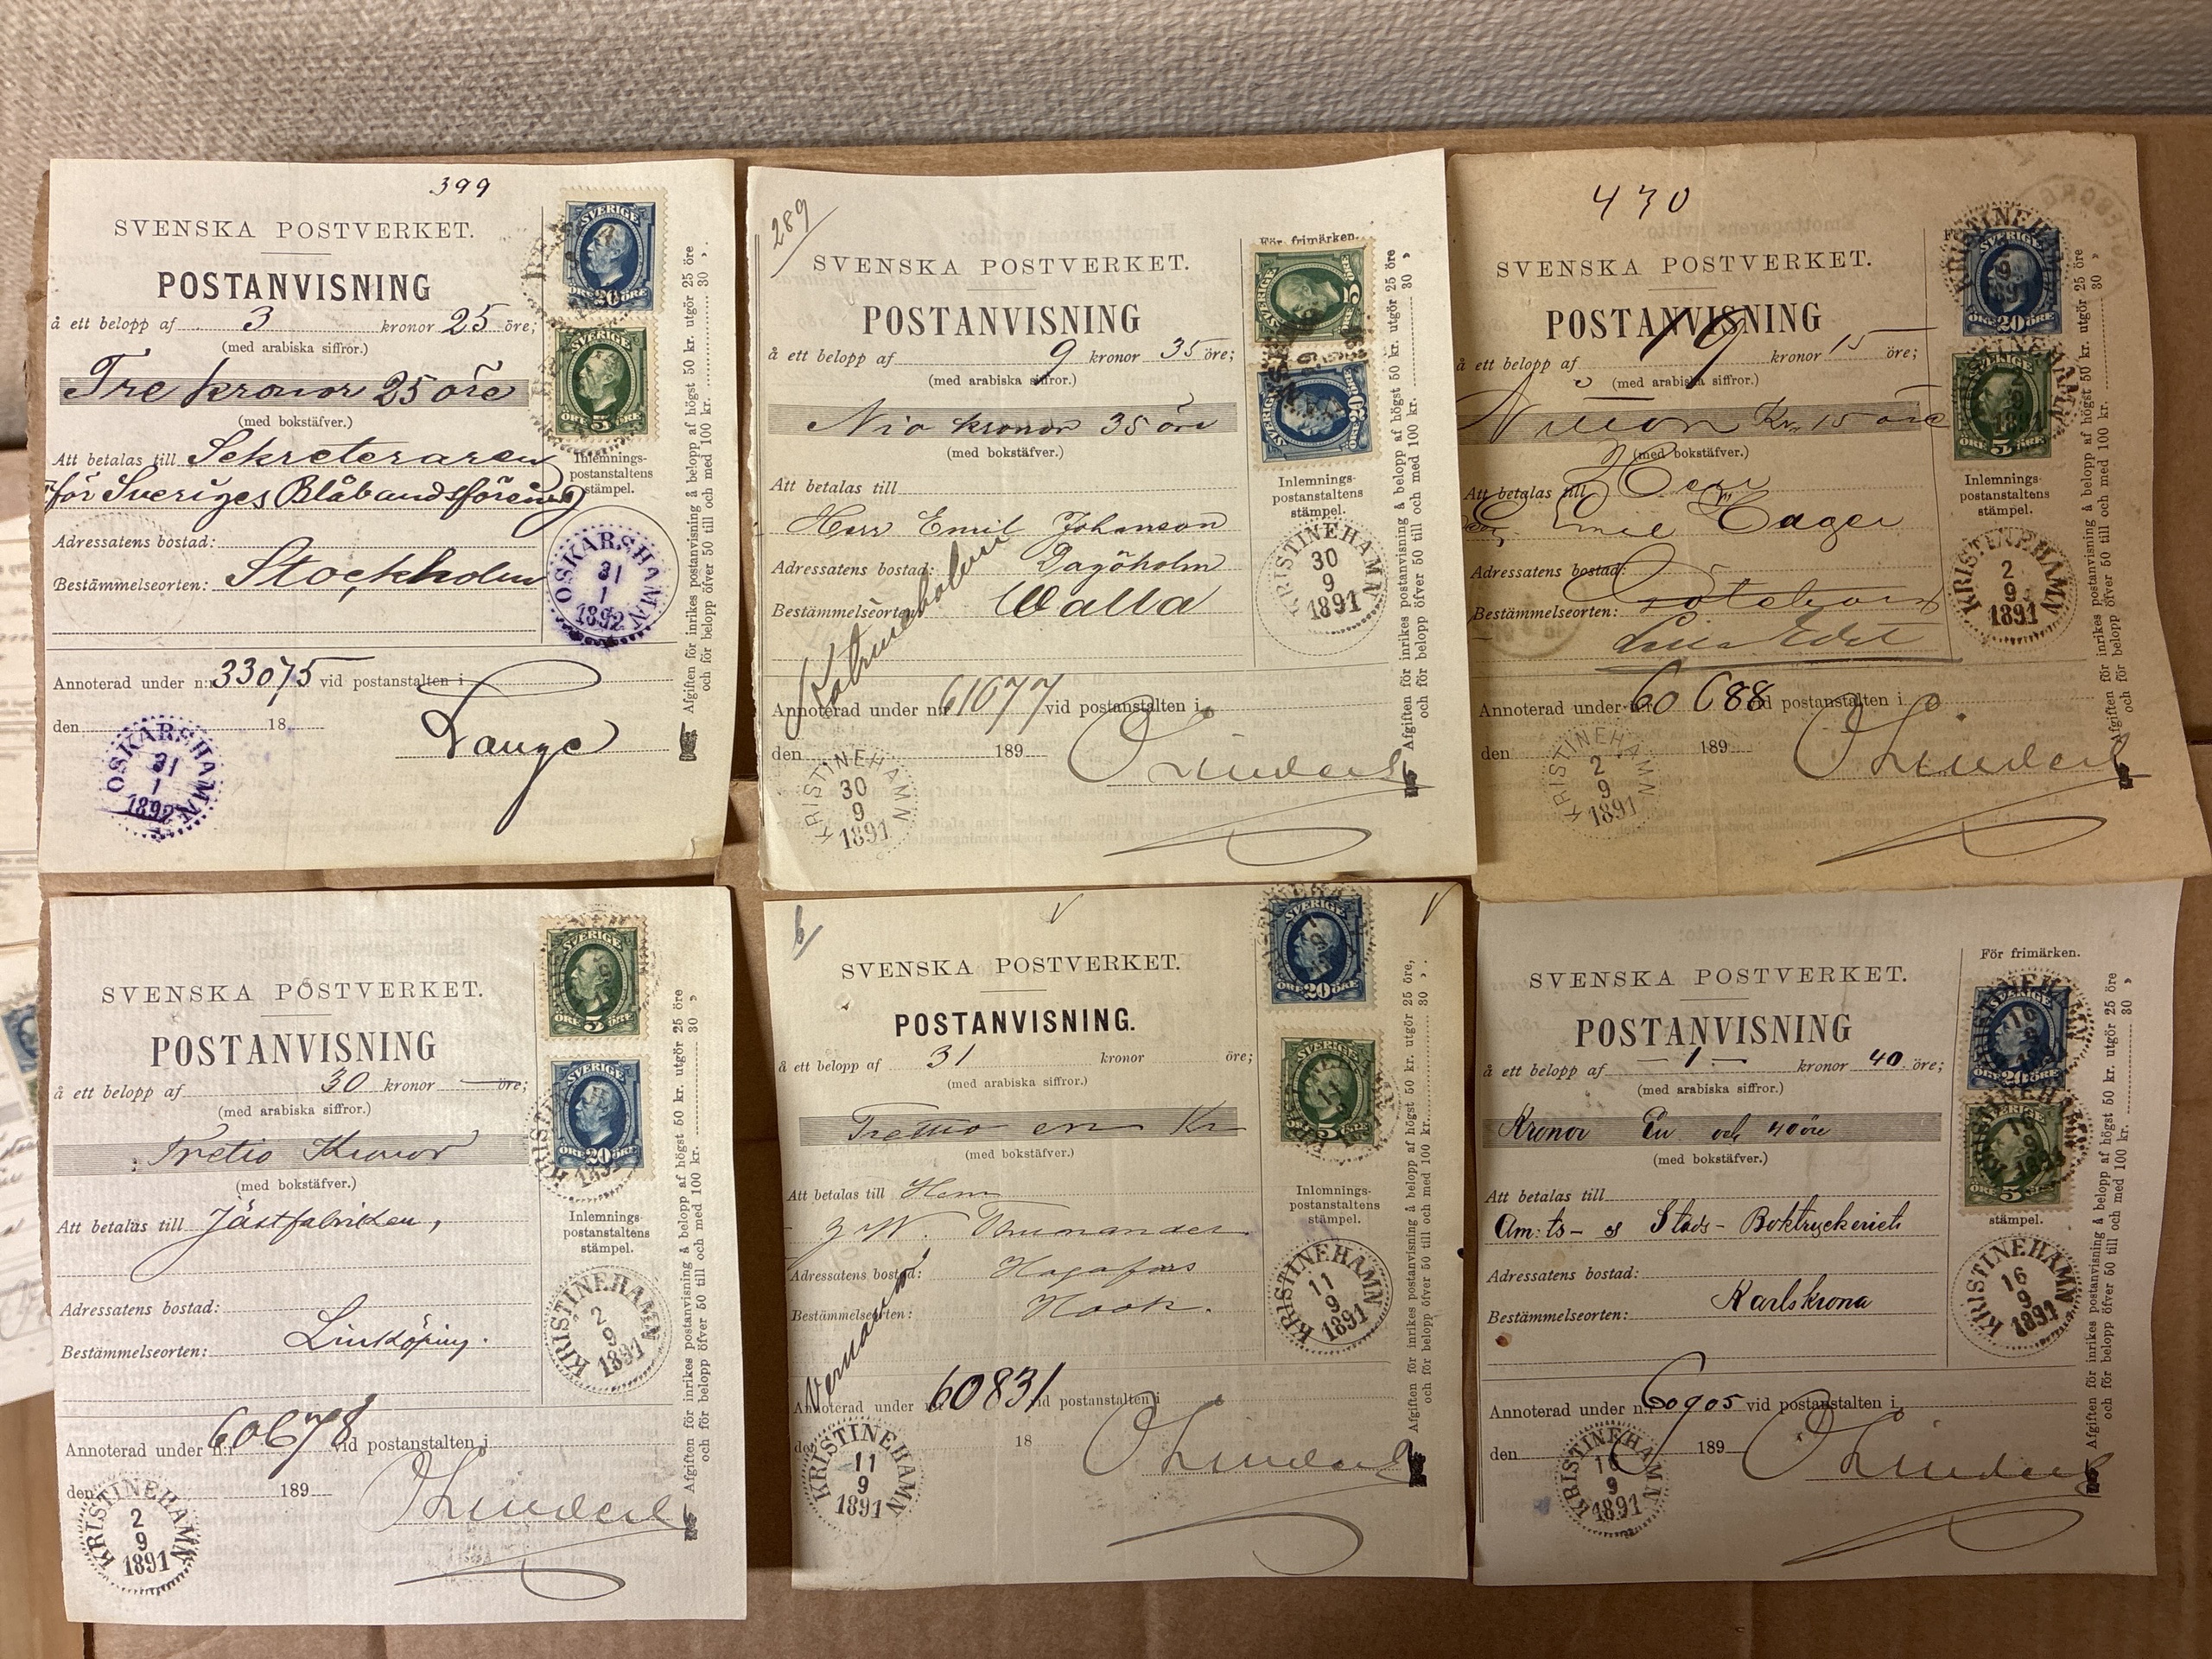 399
SVENSKA POSTVERKET.
POSTANVISNING
å ett belopp af 3 kronor 25 öre;
(med arabiska siffror.)
Tre kronor 25 öre
(med bokstäfver.)
Att betalas till Sekreteraren
för Sveriges Blåbandsförening
Adressatens bostad:
Bestämmelseorten: Stockholm
Annoterad under n:r 33075 vid postanstalten i
den 18
Lange
OSKARSHAMN
31
1
1892
SVERIGE
20
ÖRE ÖRE
SVERIGE
5
ÖRE ÖRE
Inlemnings-
postanstaltens
stämpel.
OSKARSHAMN
31
1
1892
Afgiften för inrikes postanvisning å belopp af högst 50 kr. utgör 25 öre
och för belopp öfver 50 till och med 100 kr. 30 ».
289
För frimärken.
SVENSKA POSTVERKET.
POSTANVISNING
å ett belopp af 9 kronor 35 öre;
(med arabiska siffror.)
Nio kronor 35 öre
(med bokstäfver.)
Att betalas till
Herr Emil Johanson
Adressatens bostad: Dagöholm
Bestämmelseorten: Valla
Katrineholm
Annoterad under n:r 61077 vid postanstalten i
den 189
KRISTINEHAMN
30
9
1891
SVERIGE
5
SVERIGE
20
Inlemnings-
postanstaltens
stämpel.
KRISTINEHAMN
30
9
1891
Afgiften för inrikes postanvisning å belopp af högst 50 kr. utgör 25 öre
och för belopp öfver 50 till och med 100 kr. 30 »
430
SVENSKA POSTVERKET.
POSTANVISNING
å ett belopp af 19 kronor 15 öre;
(med arabiska siffror.)
Nitton Kr 15 öre
(med bokstäfver.)
Att betalas till Herr
Emil Hager
Adressatens bostad:
Bestämmelseorten: Göteborg
Lilla Edet
Annoterad under n:r 60688 vid postanstalten i
den 189
KRISTINEHAMN
2
9
1891
KRISTINEHAMN
SVERIGE
20 ÖRE
SVERIGE
5
Inlemnings-
postanstaltens
stämpel.
KRISTINEHAMN
2
9
1891
Afgiften för inrikes postanvisning å belopp af högst 50 kr. utgör 25 öre
och för belopp öfver 50 till och med 100 kr. 30 »
SVENSKA POSTVERKET.
POSTANVISNING
å ett belopp af 30 kronor — öre;
(med arabiska siffror.)
Tretio Kronor
(med bokstäfver.)
Att betalas till Jästfabriken,
Adressatens bostad:
Bestämmelseorten: Linköping.
Annoterad under n:r 60678 vid postanstalten i
den 189
KRISTINEHAMN
2
9
1891
SVERIGE
5
ÖRE ÖRE
SVERIGE
20
ÖRE ÖRE
Inlemnings-
postanstaltens
stämpel.
KRISTINEHAMN
2
9
1891
Afgiften för inrikes postanvisning å belopp af högst 50 kr. utgör 25 öre
och för belopp öfver 50 till och med 100 kr. 30 »
SVENSKA POSTVERKET.
POSTANVISNING.
å ett belopp af 31 kronor öre;
(med arabiska siffror.)
Trettio en Kr
(med bokstäfver.)
Att betalas till Herr
Adressatens bostad: Hagafors
Bestämmelseorten: Hook.
Annoterad under n:r 60831 vid postanstalten i
den 18
KRISTINEHAMN
11
9
1891
SVERIGE
20
ÖRE ÖRE
SVERIGE
5
Inlemnings-
postanstaltens
stämpel.
KRISTINEHAMN
11
9
1891
Afgiften för inrikes postanvisning å belopp af högst 50 kr. utgör 25 öre,
och för belopp öfver 50 till och med 100 kr. 30 ».
För frimärken.
SVENSKA POSTVERKET.
POSTANVISNING
å ett belopp af — 1 — kronor 40 öre;
(med arabiska siffror.)
Kronor En och 40 öre
(med bokstäfver.)
Att betalas till
Am:ts- o Stads- Boktryckeriet
Adressatens bostad:
Bestämmelseorten: Karlskrona
Annoterad under n:r 60905 vid postanstalten i
den 189
KRISTINEHAMN
16
9
1891
SVERIGE
20
SVERIGE
5
stämpel.
KRISTINEHAMN
16
9
1891
Afgiften för inrikes postanvisning å belopp af högst 50 kr. utgör 25 öre
och för belopp öfver 50 till och med 100 kr. 30 »